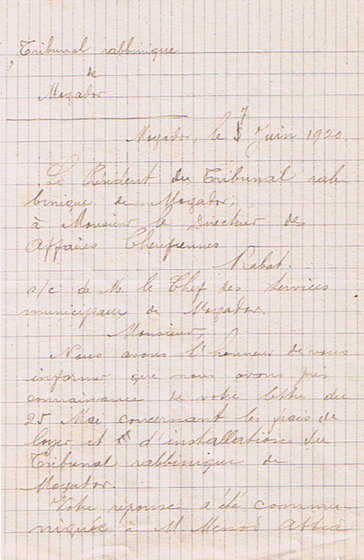 Tribunal rabbinique
de
Mogador
Mogador, le 7 Juin 1920
Le Président du Tribunal rab-
binique de Mogador,
à Monsieur le Directeur des
Affaires Chérifiennes
Rabat
a/c de M. le Chef des Services
municipaux de Mogador.
Monsieur,
Nous avons l'honneur de vous
informer que nous avons pris
connaissance de votre lettre du
25 Mai concernant les frais de
loyer et d'installation du
Tribunal rabbinique de
Mogador.
Votre réponse a été commu-
niquée à M.